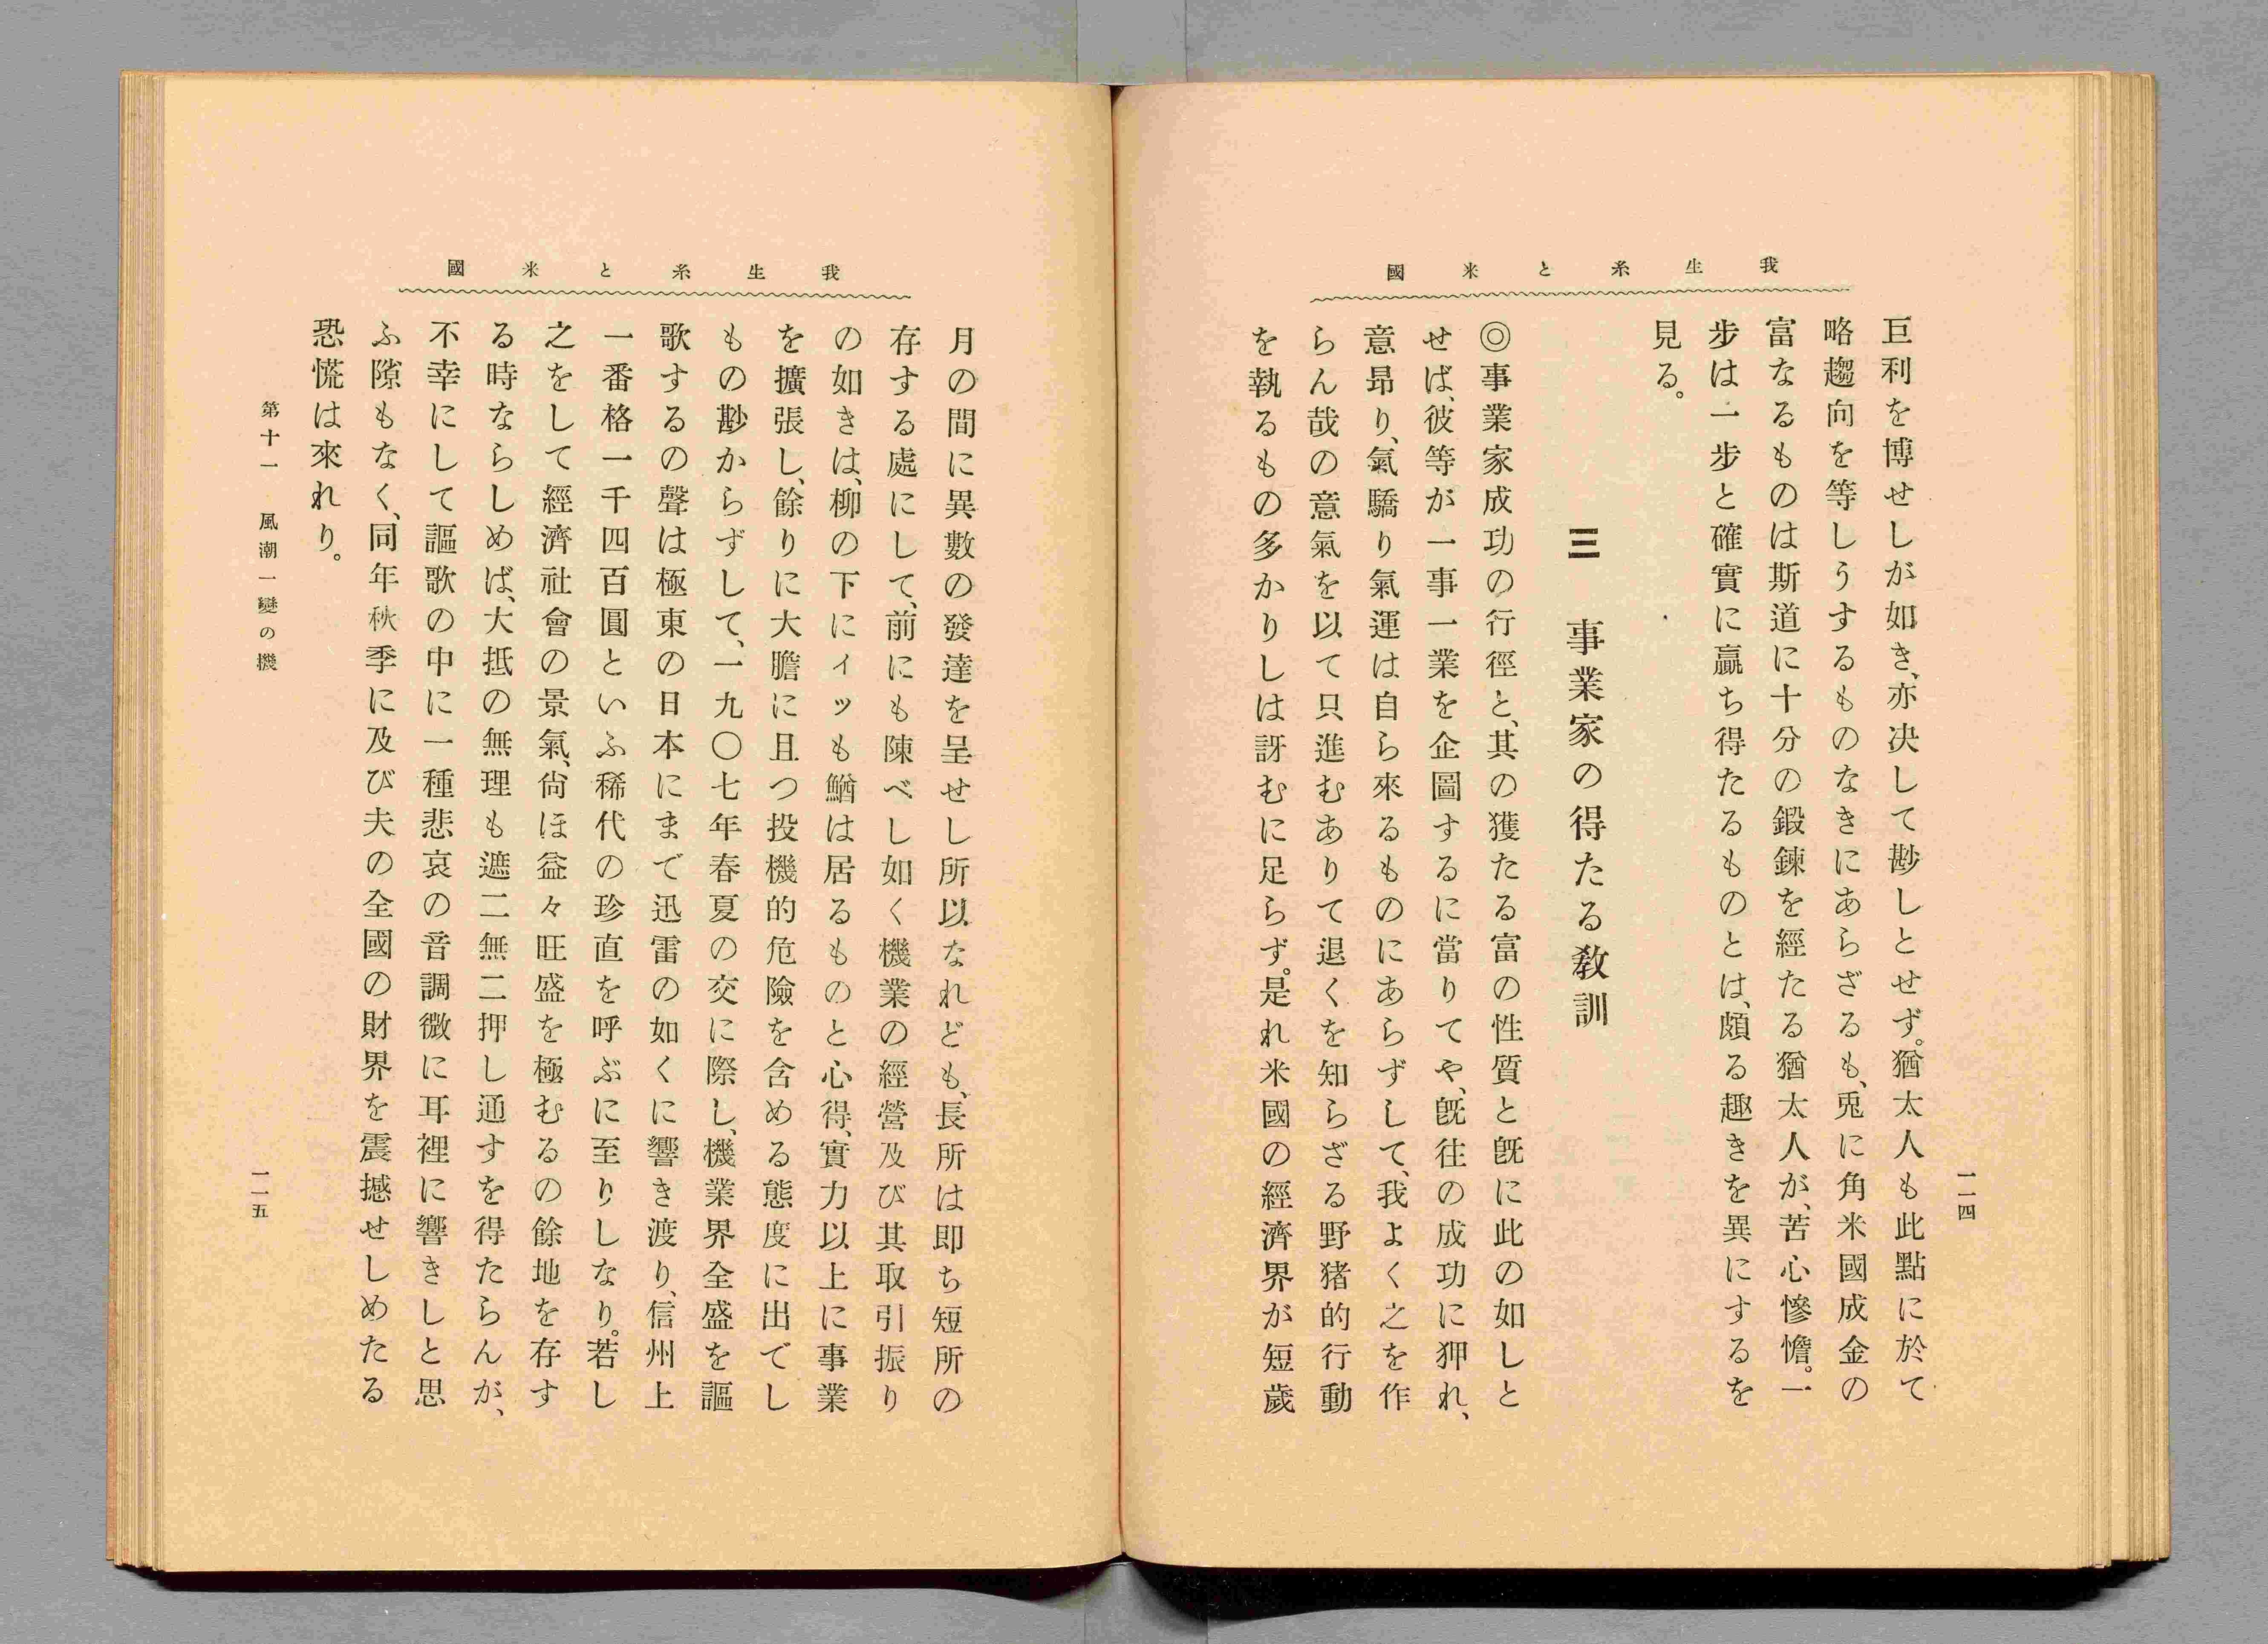 我生糸と米國
巨利を博せしが如き、亦決して尠しとせず。猶太人も此點に於て
略趨向を等しうするものなきにあらざるも、兎に角米國成金の
富なるものは斯道に十分の鍛鍊を經たる猶太人が、苦心慘憺。一
步は一步と確實に贏ち得たるものとは、頗る趣きを異にするを
見る。
三 事業家の得たる敎訓
◎事業家成功の行徑と、其の獲たる富の性質と旣に此の如しと
せば、彼等が一事一業を企圖するに當りてや、旣往の成功に狎れ、
意昂り、氣驕り氣運は自ら來るものにあらずして、我よく之を作
らん哉の意氣を以て只進むありて退くを知らざる野猪的行動
を執るもの多かりしは訝むに足らず。是れ米國の經濟界が短歲
一一四
我生糸と米國
月の間に異數の發達を呈せし所以なれども、長所は卽ち短所の
存する處にして、前にも陳べし如く機業の經營及び其取引振り
の如きは、柳の下にイッも鰌は居るものと心得、實力以上に事業
を擴張し、餘りに大膽に且つ投機的危險を含める態度に出でし
もの尠からずして、一九〇七年春夏の交に際し、機業界全盛を謳
歌するの聲は極東の日本にまで迅雷の如くに響き渡り、信州上
一番格一千四百圓といふ稀代の珍直を呼ぶに至りしなり。若し
之をして經濟社會の景氣、尙ほ益々旺盛を極むるの餘地を存す
る時ならしめば、大抵の無理も遮二無二押し通すを得たらんが、
不幸にして謳歌の中に一種悲哀の音調微に耳裡に響きしと思
ふ隙もなく、同年秋季に及び夫の全國の財界を震撼せしめたる
恐慌は來れり。
第十一 風潮一變の機
一一五